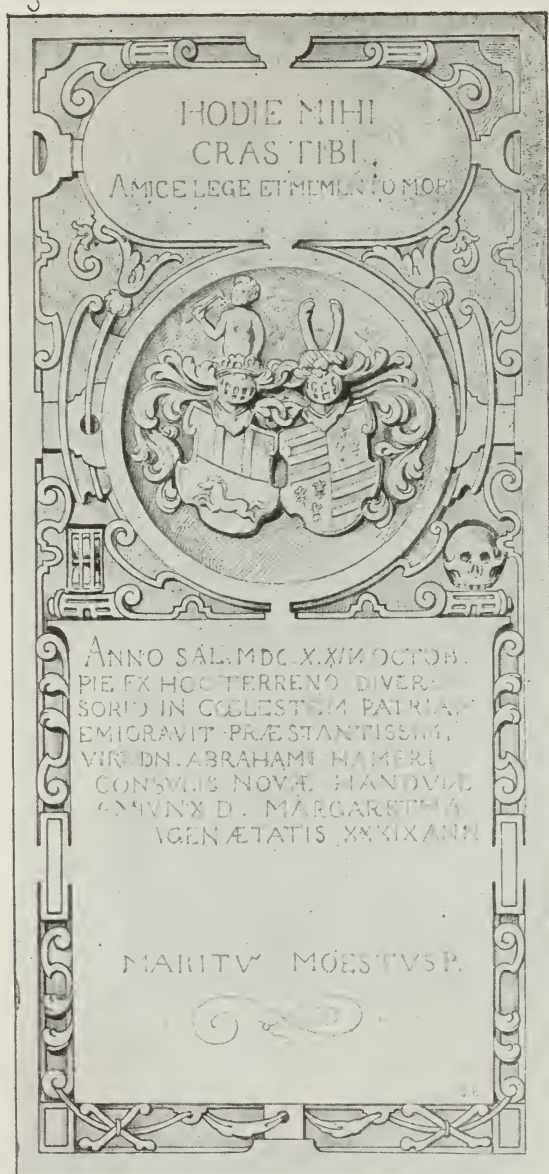 HODIE MIHI
CRAS TIBI.
AMICE LEGE ET MEMENTO MORI
ANNO SAL. MDC X. OCTOB.
PIE EX HOC TERRENO DIVER
SORIO IN CŒLESTEM PATRIAM
EMIGRAVIT PRÆSTANTISSIM,
VIRI DN. ABRAHAMI HAMERI
CONSVLIS NOVÆ
D. MARGARETHA
ÆTATIS XXXIX ANN
MARITV MOESTVS P.